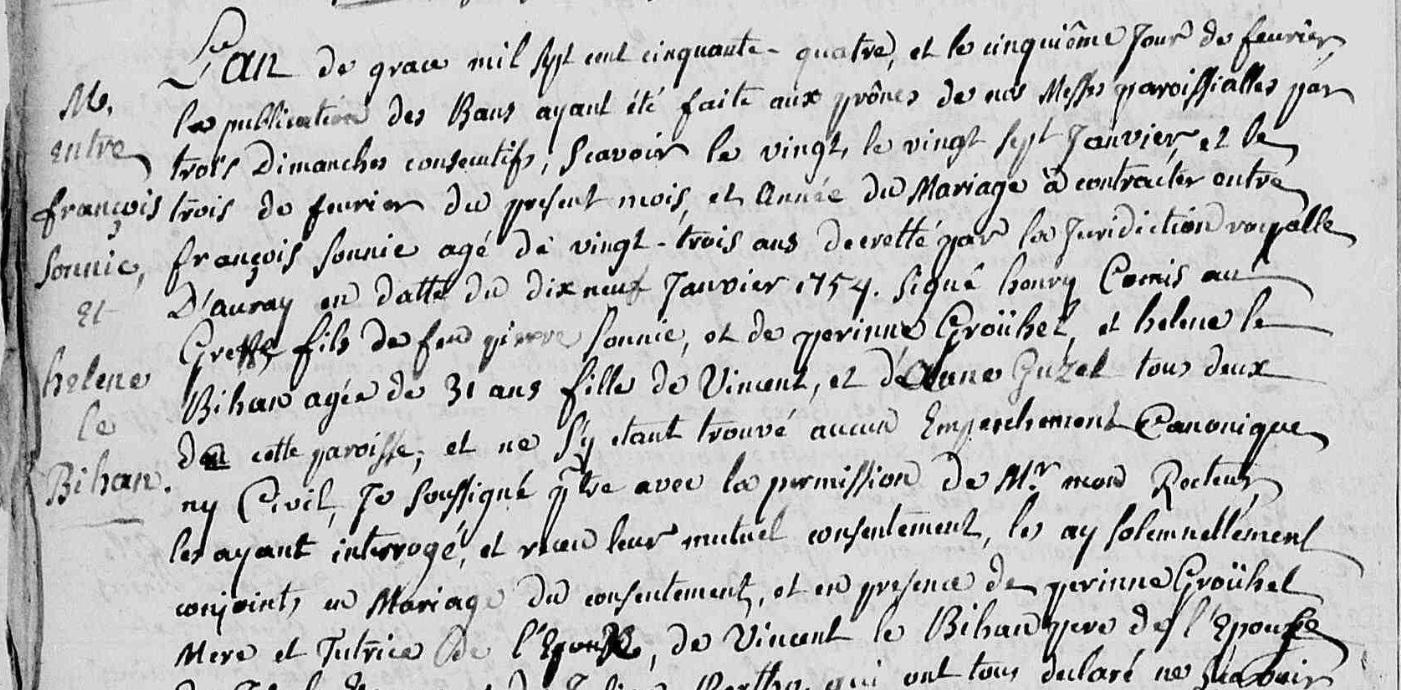 M.
entre
françois
Sonnic,
Et
helene
le
Bihan.
L'an de grace mil sept cent cinquante-quatre, et le cinquiême Jour de fevrier,
la publication des Bans ayant été faite aux prônes de nos Messes paroissialles par
trois Dimanches consecutifs, Scavoir le vingt, le vingt sept Janvier, et le
trois de fevrier du present mois, et Année du Mariage à contracter entre
françois Sonnic agé de vingt-trois ans decretté par la Juridiction royalle
D'auray en datte du dix neuf Janvier 1754. Signé henry Comis au
Greffe fils de feu pierre Sonnic, et de perinne Groühel, et helene le
Bihan agée de 31 ans fille de Vincent, et d'Anne Guzel tous deux
de cette paroisse, et ne s'y etant trouvé aucun Empechement Canonique
ny Civil, Je Soussigné ptre avec la permission de Mr. mon Recteur,
les ayant interrogé, et recu leur mutuel consentement, les ay solemnellement
conjoints en Mariage du consentement, et en presence de perinne Groühel
Mere et Tutrice de l'Epoux, de Vincent le Bihan pere de l'Epouse
qui ont tous declaré ne Scavoir